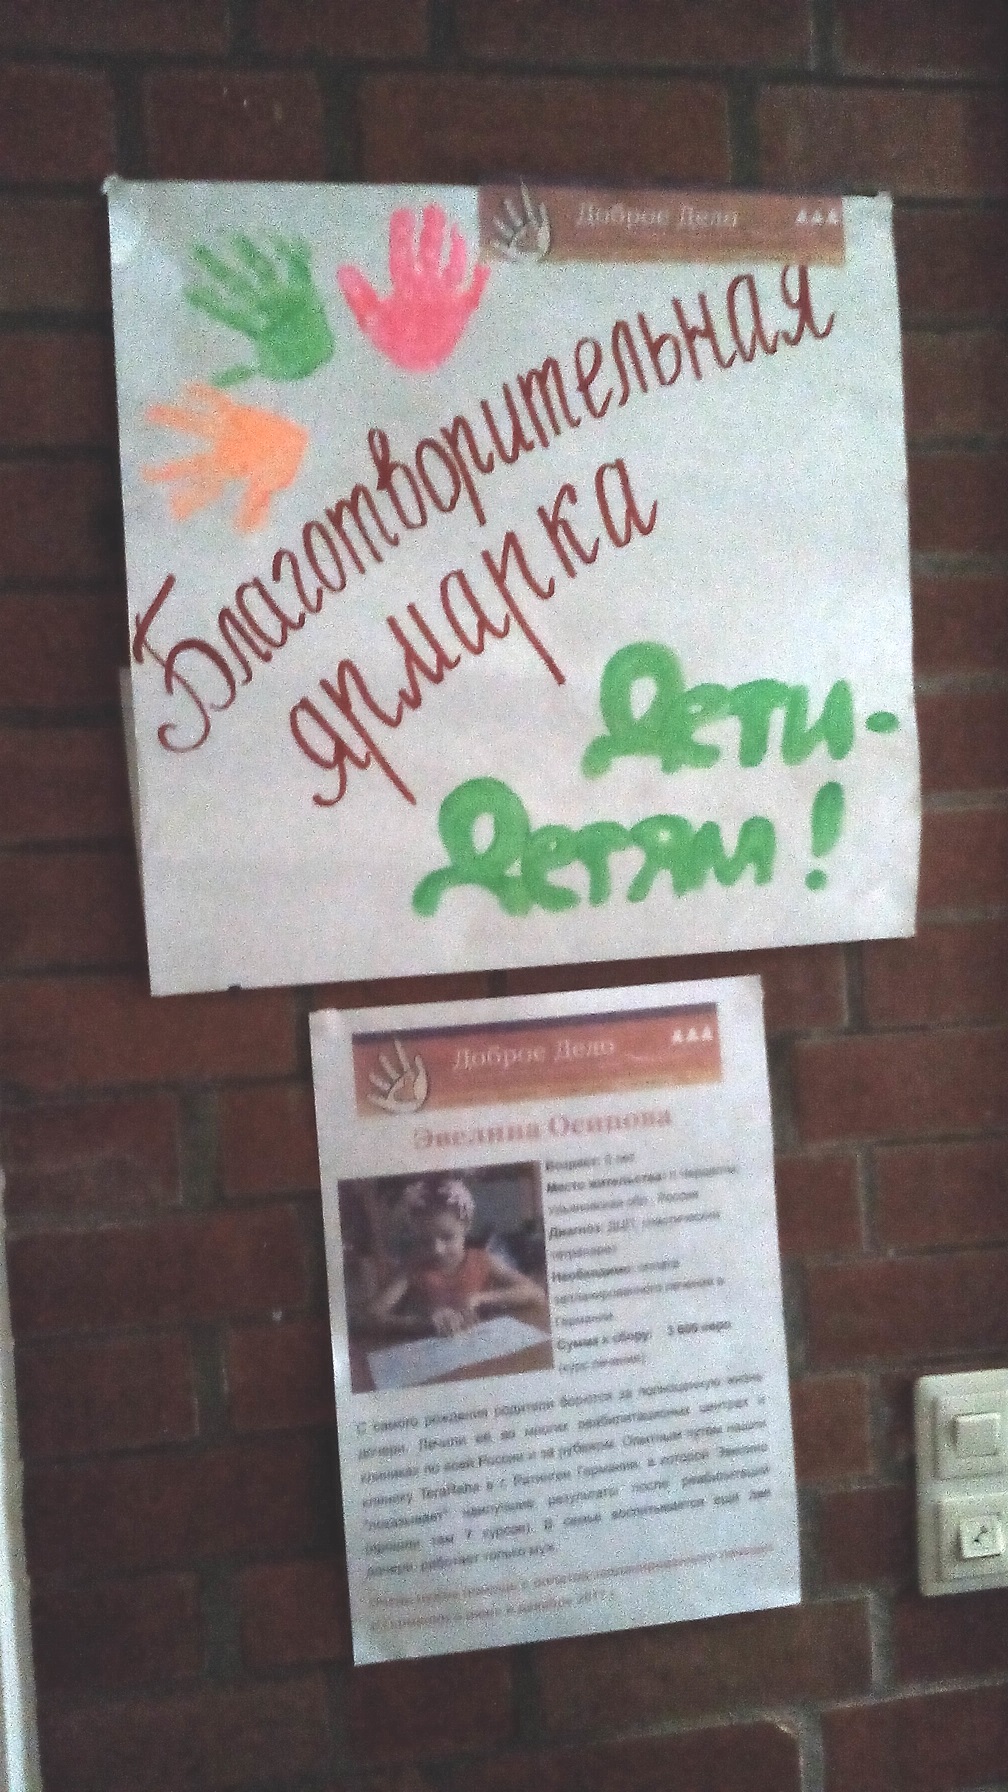 Доброе Дело
Благотворительная
ярмарка
Дети-
Детям!
Доброе Дело
Эвелина Осипова
Возраст: лет
Место жительства:
Ульяновская обл., Россия
Диагноз: ДЦП, спастический
тетрапарез
Необходимо: оплата
запланированного лечения в
Германии.
Сумма к сбору: 3 600 евро
(курс лечения)
С самого рождения родители борются за полноценную жизнь
дочери. Лечили её во многих реабилитационных центрах и
клиниках по всей России и за рубежом. Опытным путём нашли
клинику в г. Ратинген Германии, в которой Эвелина
"показывает" наилучшие результаты после реабилитации
(прошли там 7 курсов). В семье воспитывается ещё две
дочери, работает только муж.